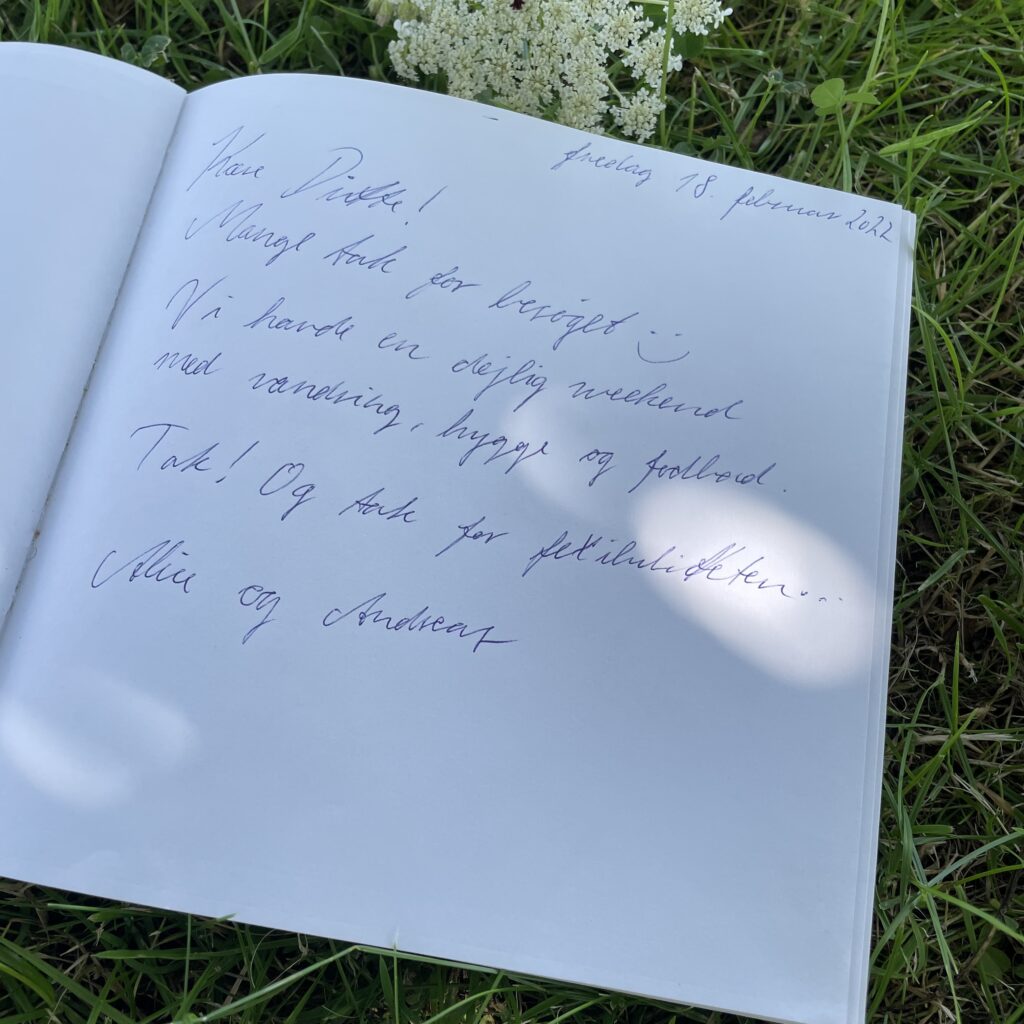 fredag 18. februar 2022
Kære Ditte!
Mange tak for besøget :)
Vi havde en dejlig weekend
med vandring, hygge og fodbold.
Tak! Og tak for flexibiliteten...
Alice og Andreas